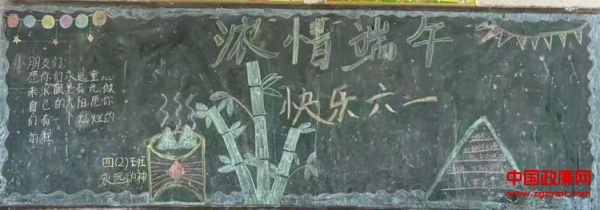 浓情端午
快乐六一
小朋友们:
愿你们永远童心
未泯眼里有光做
自己的太阳愿你
们有一个灿烂的
前程
四(2)班
永远的神
中国政廉网
www.zgzjrmt.com